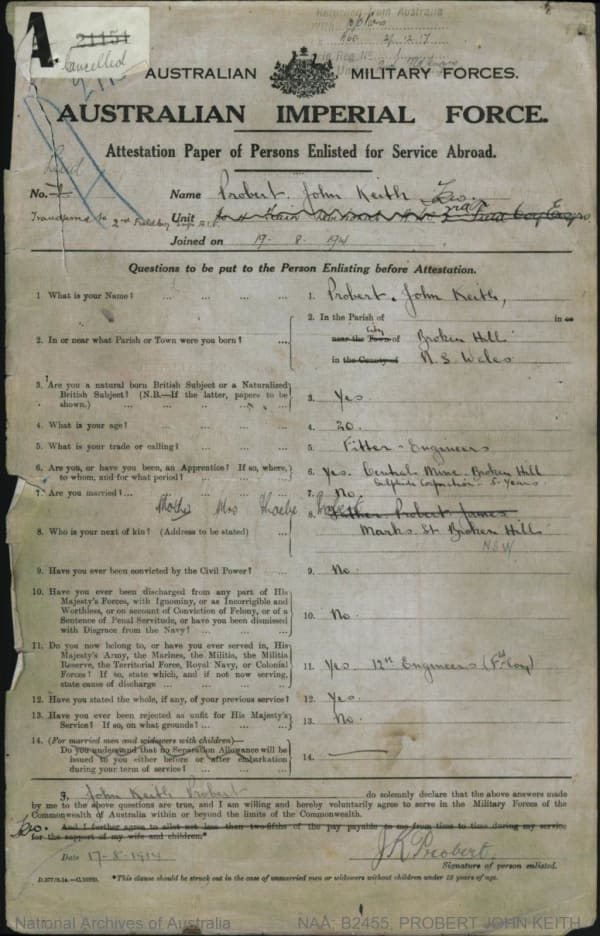 A.
21151
Cancelled
from Australia
2/12.17
AUSTRALIAN MILITARY FORCES.
AUSTRALIAN IMPERIAL FORCE.
Attestation Paper of Persons Enlisted for Service Abroad.
No. Name Probert. John Keith
Unit
Joined on 17 - 8 - 1914
Questions to be put to the Person Enlisting before Attestation.
1. What is your Name? ... ... ... ... 1. Probert. John Keith,
2. In or near what Parish or Town were you born? ... 2. In the Parish of in or
near the Town of Broken Hill
in the County of N. S. Wales
3. Are you a natural born British Subject or a Naturalized
British Subject? (N.B.—If the latter, papers to be
shown.) ... ... ... ... 3. Yes
4. What is your age? ... ... ... ... 4. 20.
5. What is your trade or calling? ... ... ... 5. Fitter - Engineers
6. Are you, or have you been, an Apprentice? If so, where,
to whom, and for what period? ... ... ... 6. Yes. Central Mine. Broken Hill
Sulphide Corporation - 5 - Years.
7. Are you married? ... 7. No.
Mother Mrs Phoebe Probert
8. Father Probert James
8. Who is your next of kin? (Address to be stated) ... Marks. St Broken Hill
N.S.W
9. Have you ever been convicted by the Civil Power? ... 9. No.
10. Have you ever been discharged from any part of His
Majesty's Forces, with Ignominy, or as Incorrigible and
Worthless, or on account of Conviction of Felony, or of a
Sentence of Penal Servitude, or have you been dismissed
with Disgrace from the Navy? ... ... ... 10. No.
11. Do you now belong to, or have you ever served in, His
Majesty's Army, the Marines, the Militia, the Militia
Reserve, the Territorial Force, Royal Navy, or Colonial
Forces? If so, state which, and if not now serving,
state cause of discharge ... ... ... 11. Yes 12th Engineers
12. Have you stated the whole, if any, of your previous service? 12. Yes.
13. Have you ever been rejected as unfit for His Majesty's
Service? If so, on what grounds? ... ... ... 13. No.
14. (For married men and widowers with children)—
Do you understand that no Separation Allowance will be
issued to you either before or after embarkation
during your term of service? ... ... ... 14.
I, John Keith Probert do solemnly declare that the above answers made
by me to the above questions are true, and I am willing and hereby voluntarily agree to serve in the Military Forces of the
Commonwealth of Australia within or beyond the limits of the Commonwealth.
And I further agree to allot not less than two-fifths of the pay payable to me from time to time during my service
for the support of my wife and children.*
Date 17-8-1914 J K Probert
Signature of person enlisted.
*This clause should be struck out in the case of unmarried men or widowers without children under 18 years of age.
National Archives of Australia NAA: B2455, PROBERT JOHN KEITH